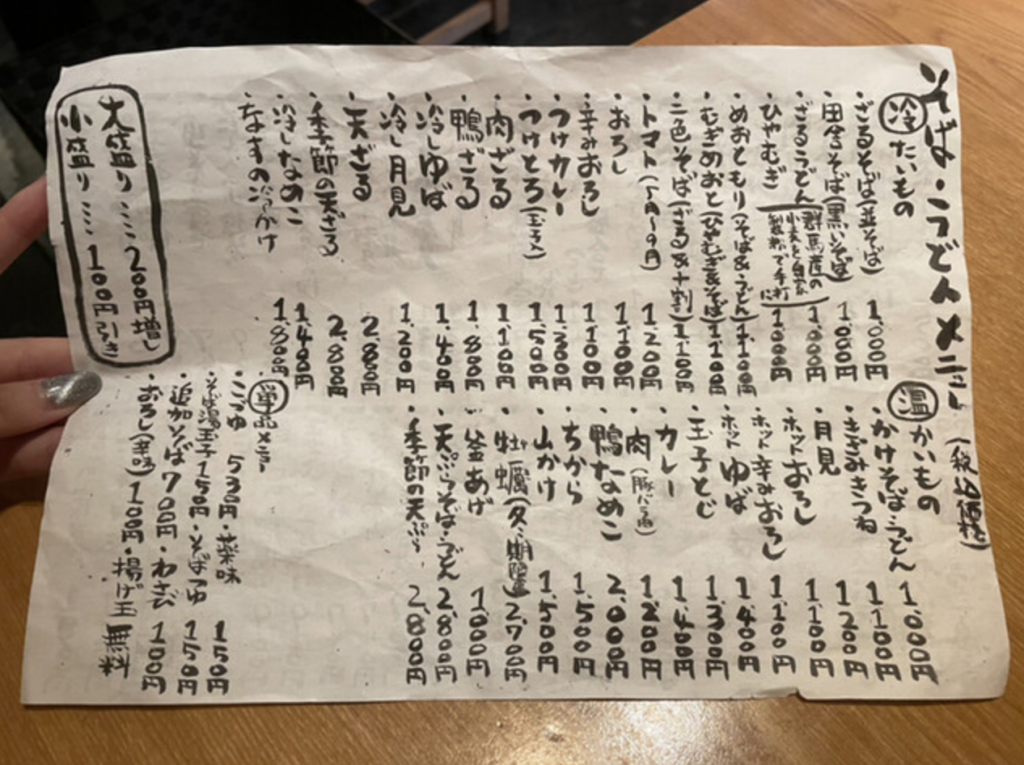 そば・うどんメニュー (税込価格)
冷たいもの
・ざるそば(並そば) 1.000円
・田舎そば(黒いそば) 1.000円
・ざるうどん 1.000円
・ひやむぎ 1.000円
群馬産の
小麦と自家
製粉で手打に
・めおともり(そば&うどん) 1.100円
・むぎめおと(ひやむぎ&そば) 1.100円
・二色そば(ざる&十割) 1.100円
・トマト(5月〜9月) 1.200円
・おろし 1.100円
・辛みおろし 1.100円
・つけカレー 1.300円
・つけとろ(玉子入) 1.500円
・肉ざる 1.100円
・鴨ざる 1.800円
・冷しゆば 1.400円
・冷し月見 1.200円
・天ざる 2.800円
・季節の天ざる 2.800円
・冷しなめこ 1.400円
・なすの冷かけ 1.800円
大盛り…200円増し
小盛り…100円引き
温かいもの
・かけそば・うどん 1.000円
・きざみきつね 1.100円
・月見 1.200円
・ホットおろし 1.100円
・ホット辛みおろし 1.100円
・ホットゆば 1.400円
・玉子とじ 1.300円
・カレー 1.400円
・肉(豚バラ肉) 1.200円
・鴨なめこ 2.000円
・ちから 1.500円
・山かけ 1.500円
・牡蠣(冬・期限) 2.700円
・釜あげ 1.000円
・天ぷらそば・うどん 2.800円
・季節の天ぷら 2.800円
単品メニュー
・こつゆ 530円・薬味 150円
・そば湯玉子 150円・そばつゆ 150円
・追加そば 700円・わさび 100円
・おろし(辛味)100円・揚げ玉 無料